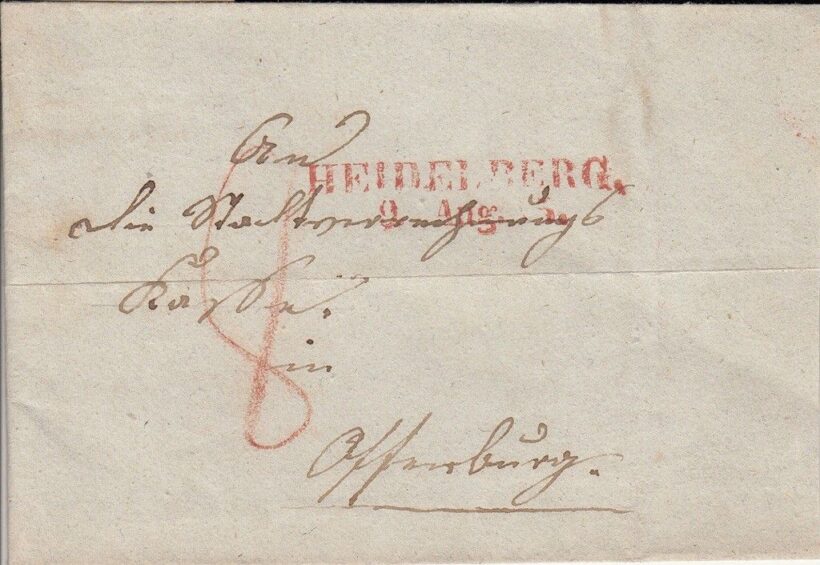 An
HEIDELBERG.
9. Aug.
die Stadtverrechnungs
Kasse.
in
Offenburg.
8